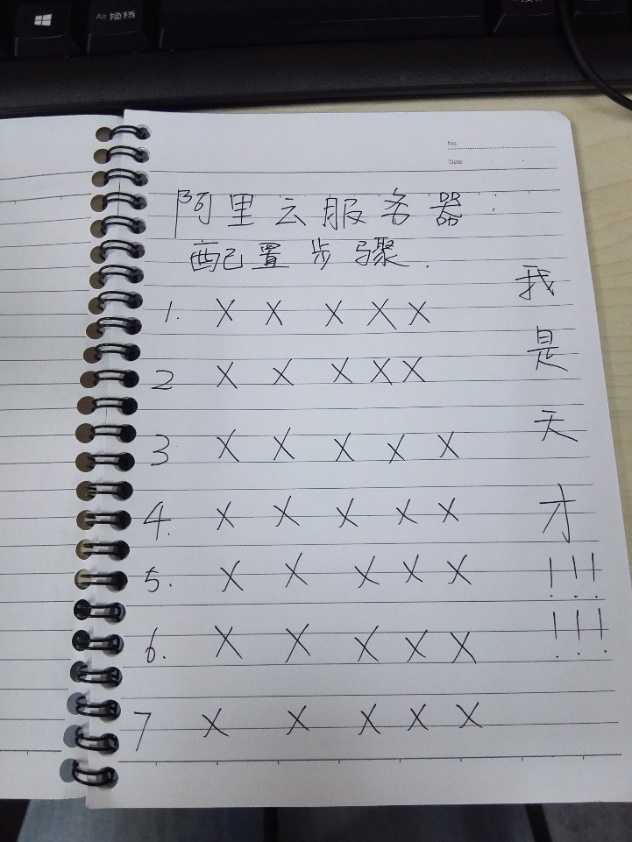 No.
Date
阿里云服务器:
配置步骤.
1. X X X X X
2 X X X X X
3 X X X X X
4. X X X X X
5. X X X X X
6. X X X X X
7 X X X X X
我是天才!!!!!!